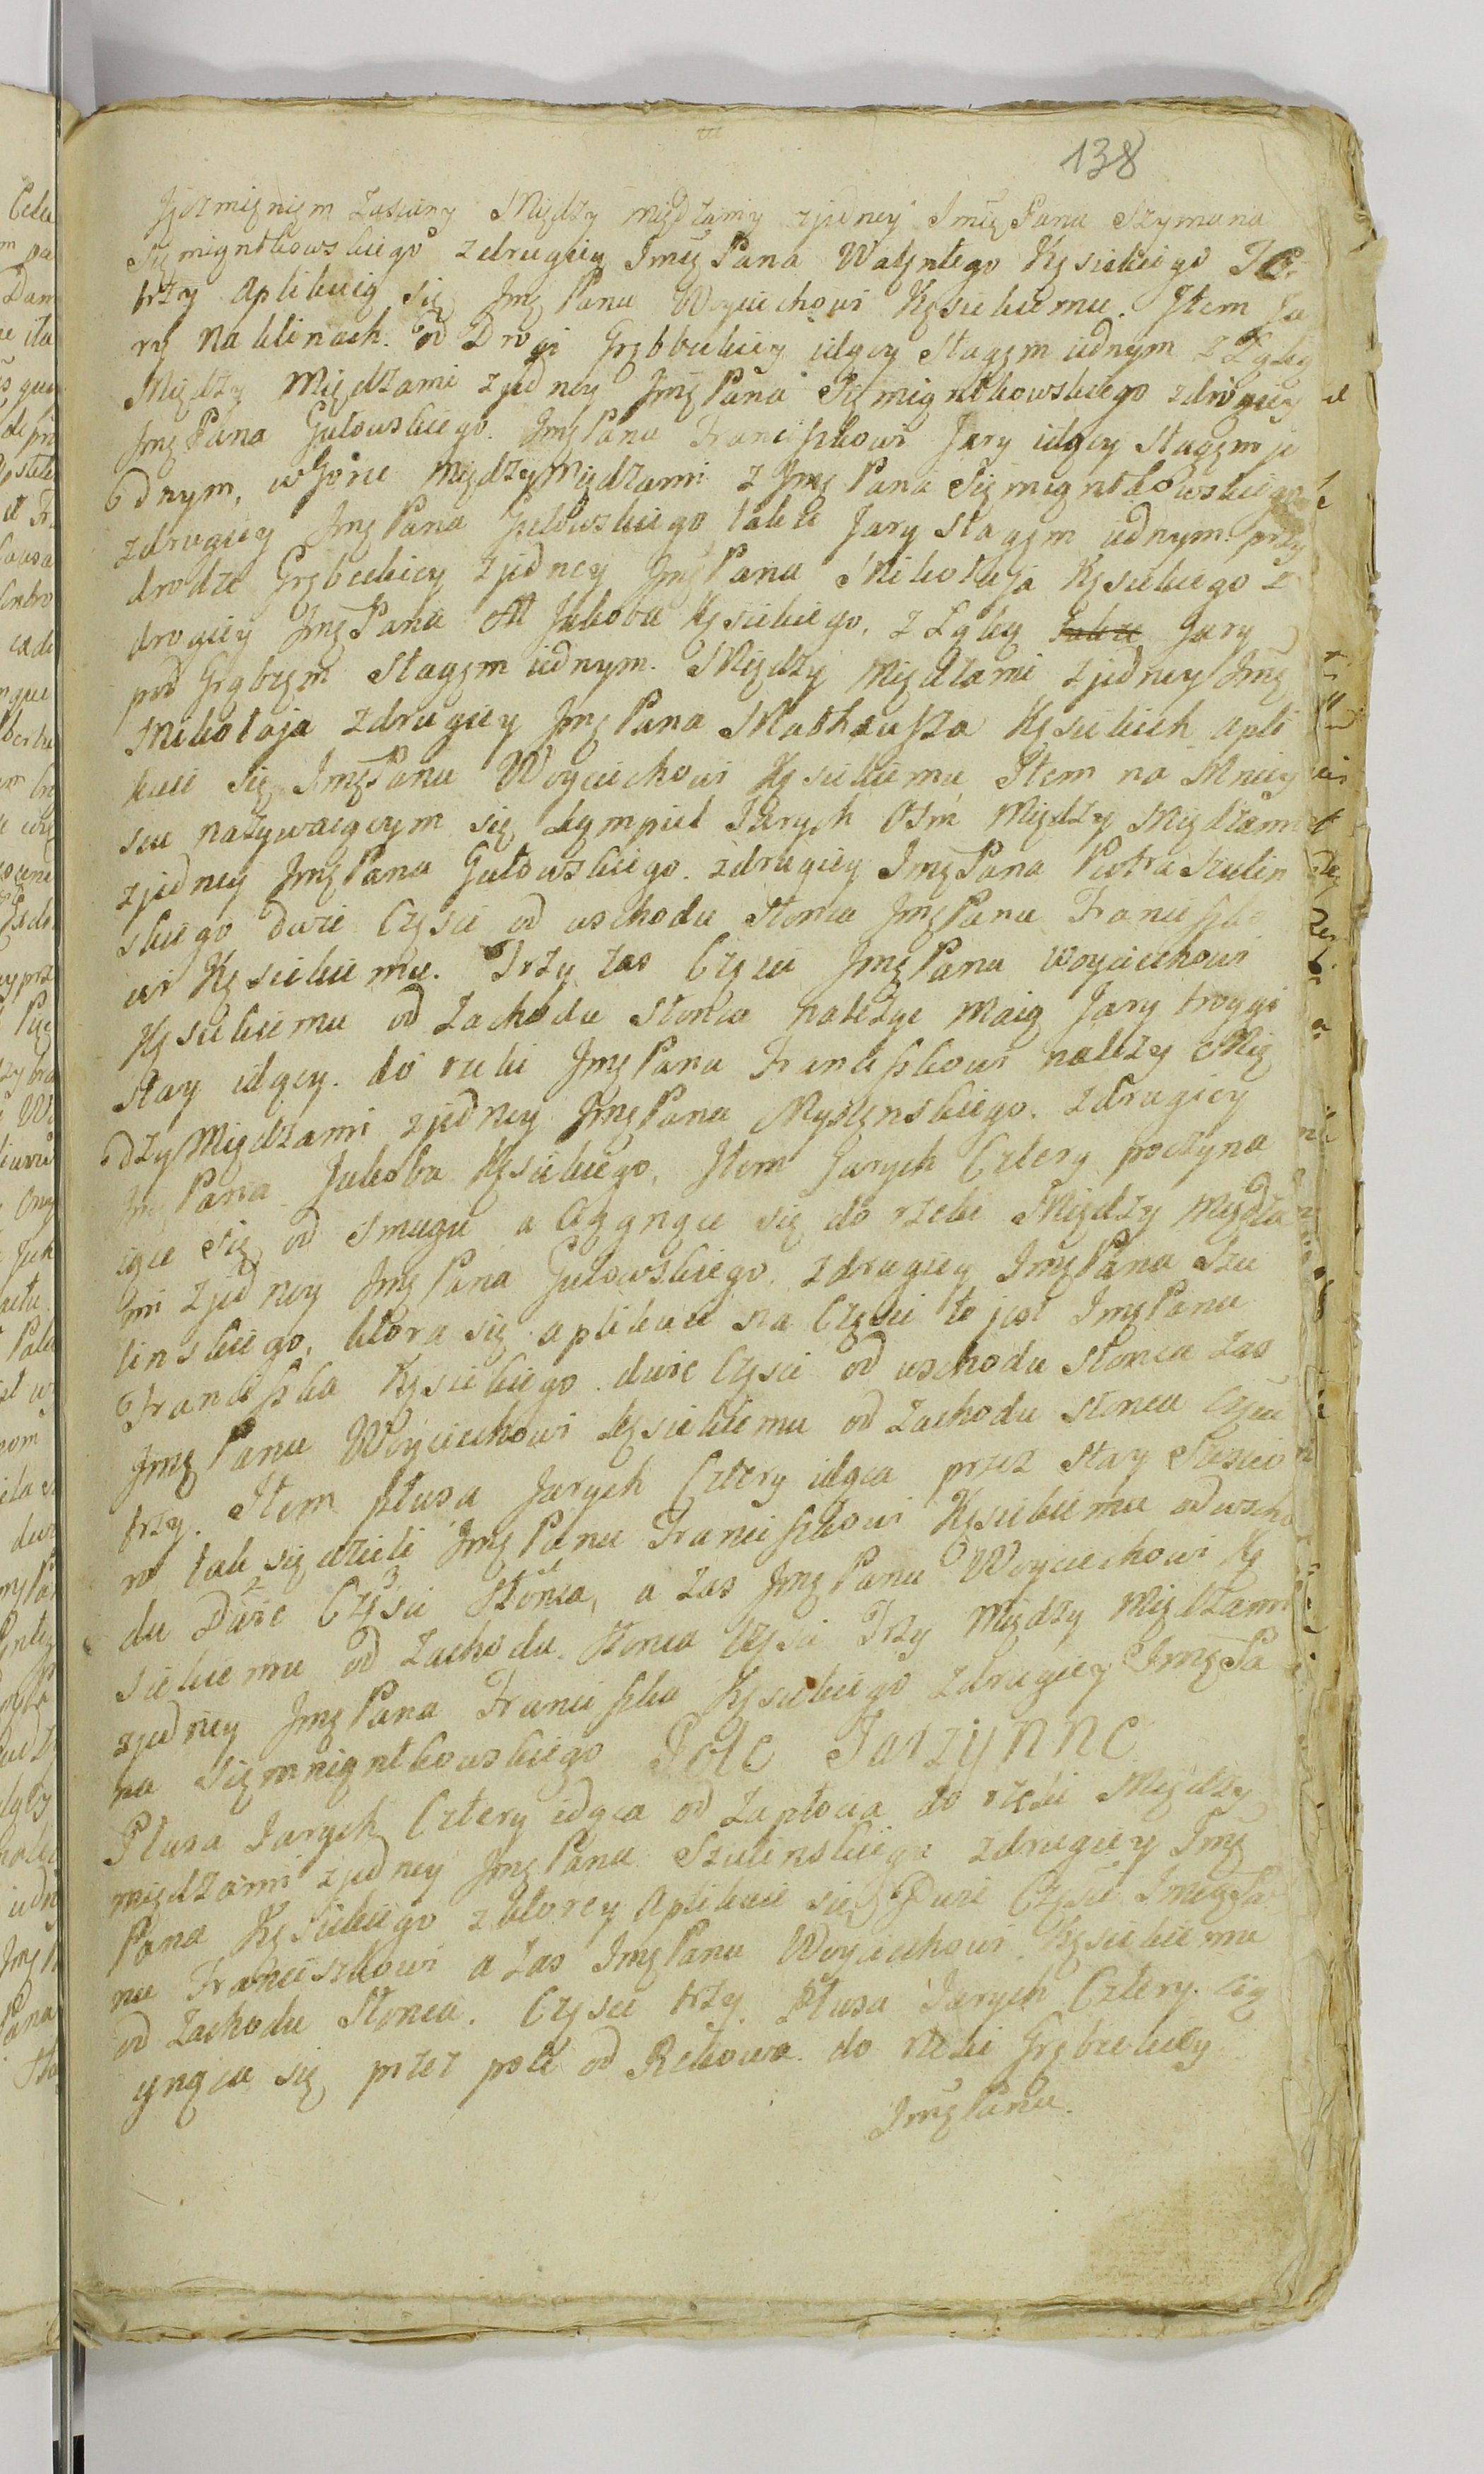 138
Jęczmięniem zasiany Między międzamy zjedney Jmę Pana Szymona
Sięmiątkowskiego z drugiey Jmę Pana Walętego Kęsickiego
trzy aplikuią się Jmę Panu Woyciechowi Kęsickiemu. Jtem Ja
ry na klinach od Drogi Grębeckiey idący stagęm iednym z Łąką
Między Międzami z jedney Jmę Pana Sięmiątkowskiego zdrogiey
Jmę Pana Gutowskiego. Jmę Panu Franciszkowi Jary idący stagęm je
dnym, w Gorie między Międzami z Jmę Pana Sięmiątkowskiego
zdrugiey Jmę Pana Gutowskiego także Jary stagęm iednym przy
drodze Grębeckiey zjedney Jmę Pana Mikołaja Kęsickiego z
drogiey Jmę Pana Jakoba Kęsickiego, z Łąką także Jary
pod Grąbzęm stagęm iednym. Między Międzami z jedney Jmę
Mikołaja zdrugiey Jmę Pana Mathæusza Kęsickich apli
kuie się Jmę Panu Woyciechowi Kęsickiemu Jtem na Mniey
scu nazywaiącym się Kęmpiel Jarych Osm Między Międzami
zjedney Jmę Pana Gutowskiego. zdrugiey Jmę Pana Piotra Szulin
skiego dwie Częsci od wschodu słonca Jmę Panu Franciszko
wi Kęsickiemu. Trzy zas Częsci Jmę Panu Woyciechowi
Kęsickiemu od zachodu słonca należyc maią Jary troygi
stay idący do rzeki Jmę Panu Franciszkowi należy Mię
dzy Międzami zjedney Jmę Pana Myszynskiego. zdrugiey
Jmę Pana Jakoba Kęsickiego, Jtem Jarych Cztery poczyna
iące się od smugu a Ciągnące się do rzeki Między Międza
mi z jedney Jmę Pana Gutowskiego. zdrugiey Jmę Pana Szu
linskiego, ktora się aplikuie na Częsci to jest Jmę Panu
Franciszka Kęsickiego dwie Częsci od wschodu słonca zas
Jmę Panu Woyciechowi Kęsickiemu od zachodu słonca Częsci
trzy. Jtem Płusa Jarych Cztery idąca przez stay Szescio
ro tak się dzieli Jmę Panu Franciszkowi Kęsickiemu od wscho
du Dwie Częsci słonca, a zas Jmę Panu Woyciechowi Kę
sickiemu od zachodu słonca Częsci Trzy Między Międzami
zjedney Jmę Pana Franciszka Kęsickiego zdrugiey Jmę Pa
na Sięmniątkowskiego Pole Jarzynne
Płusa Jarych Cztery idąca od zapłocia do rzeki Między
międzami zjedney Jmę Pana Szulinskiego zdrugiey Jmę
Pana Kęsickiego z ktorey aplikuie się Dwie Częsci Jmę Pa
nu Franciszkowi a zas Jmę Panu Woyciechowi Kęsickiemu
od zachodu słonca. Częsci trzy. Płusa Jarych Cztery. cią
gnąca się przez pole od Rekowa do rzeki Grębeckiey
Jmę Panu.